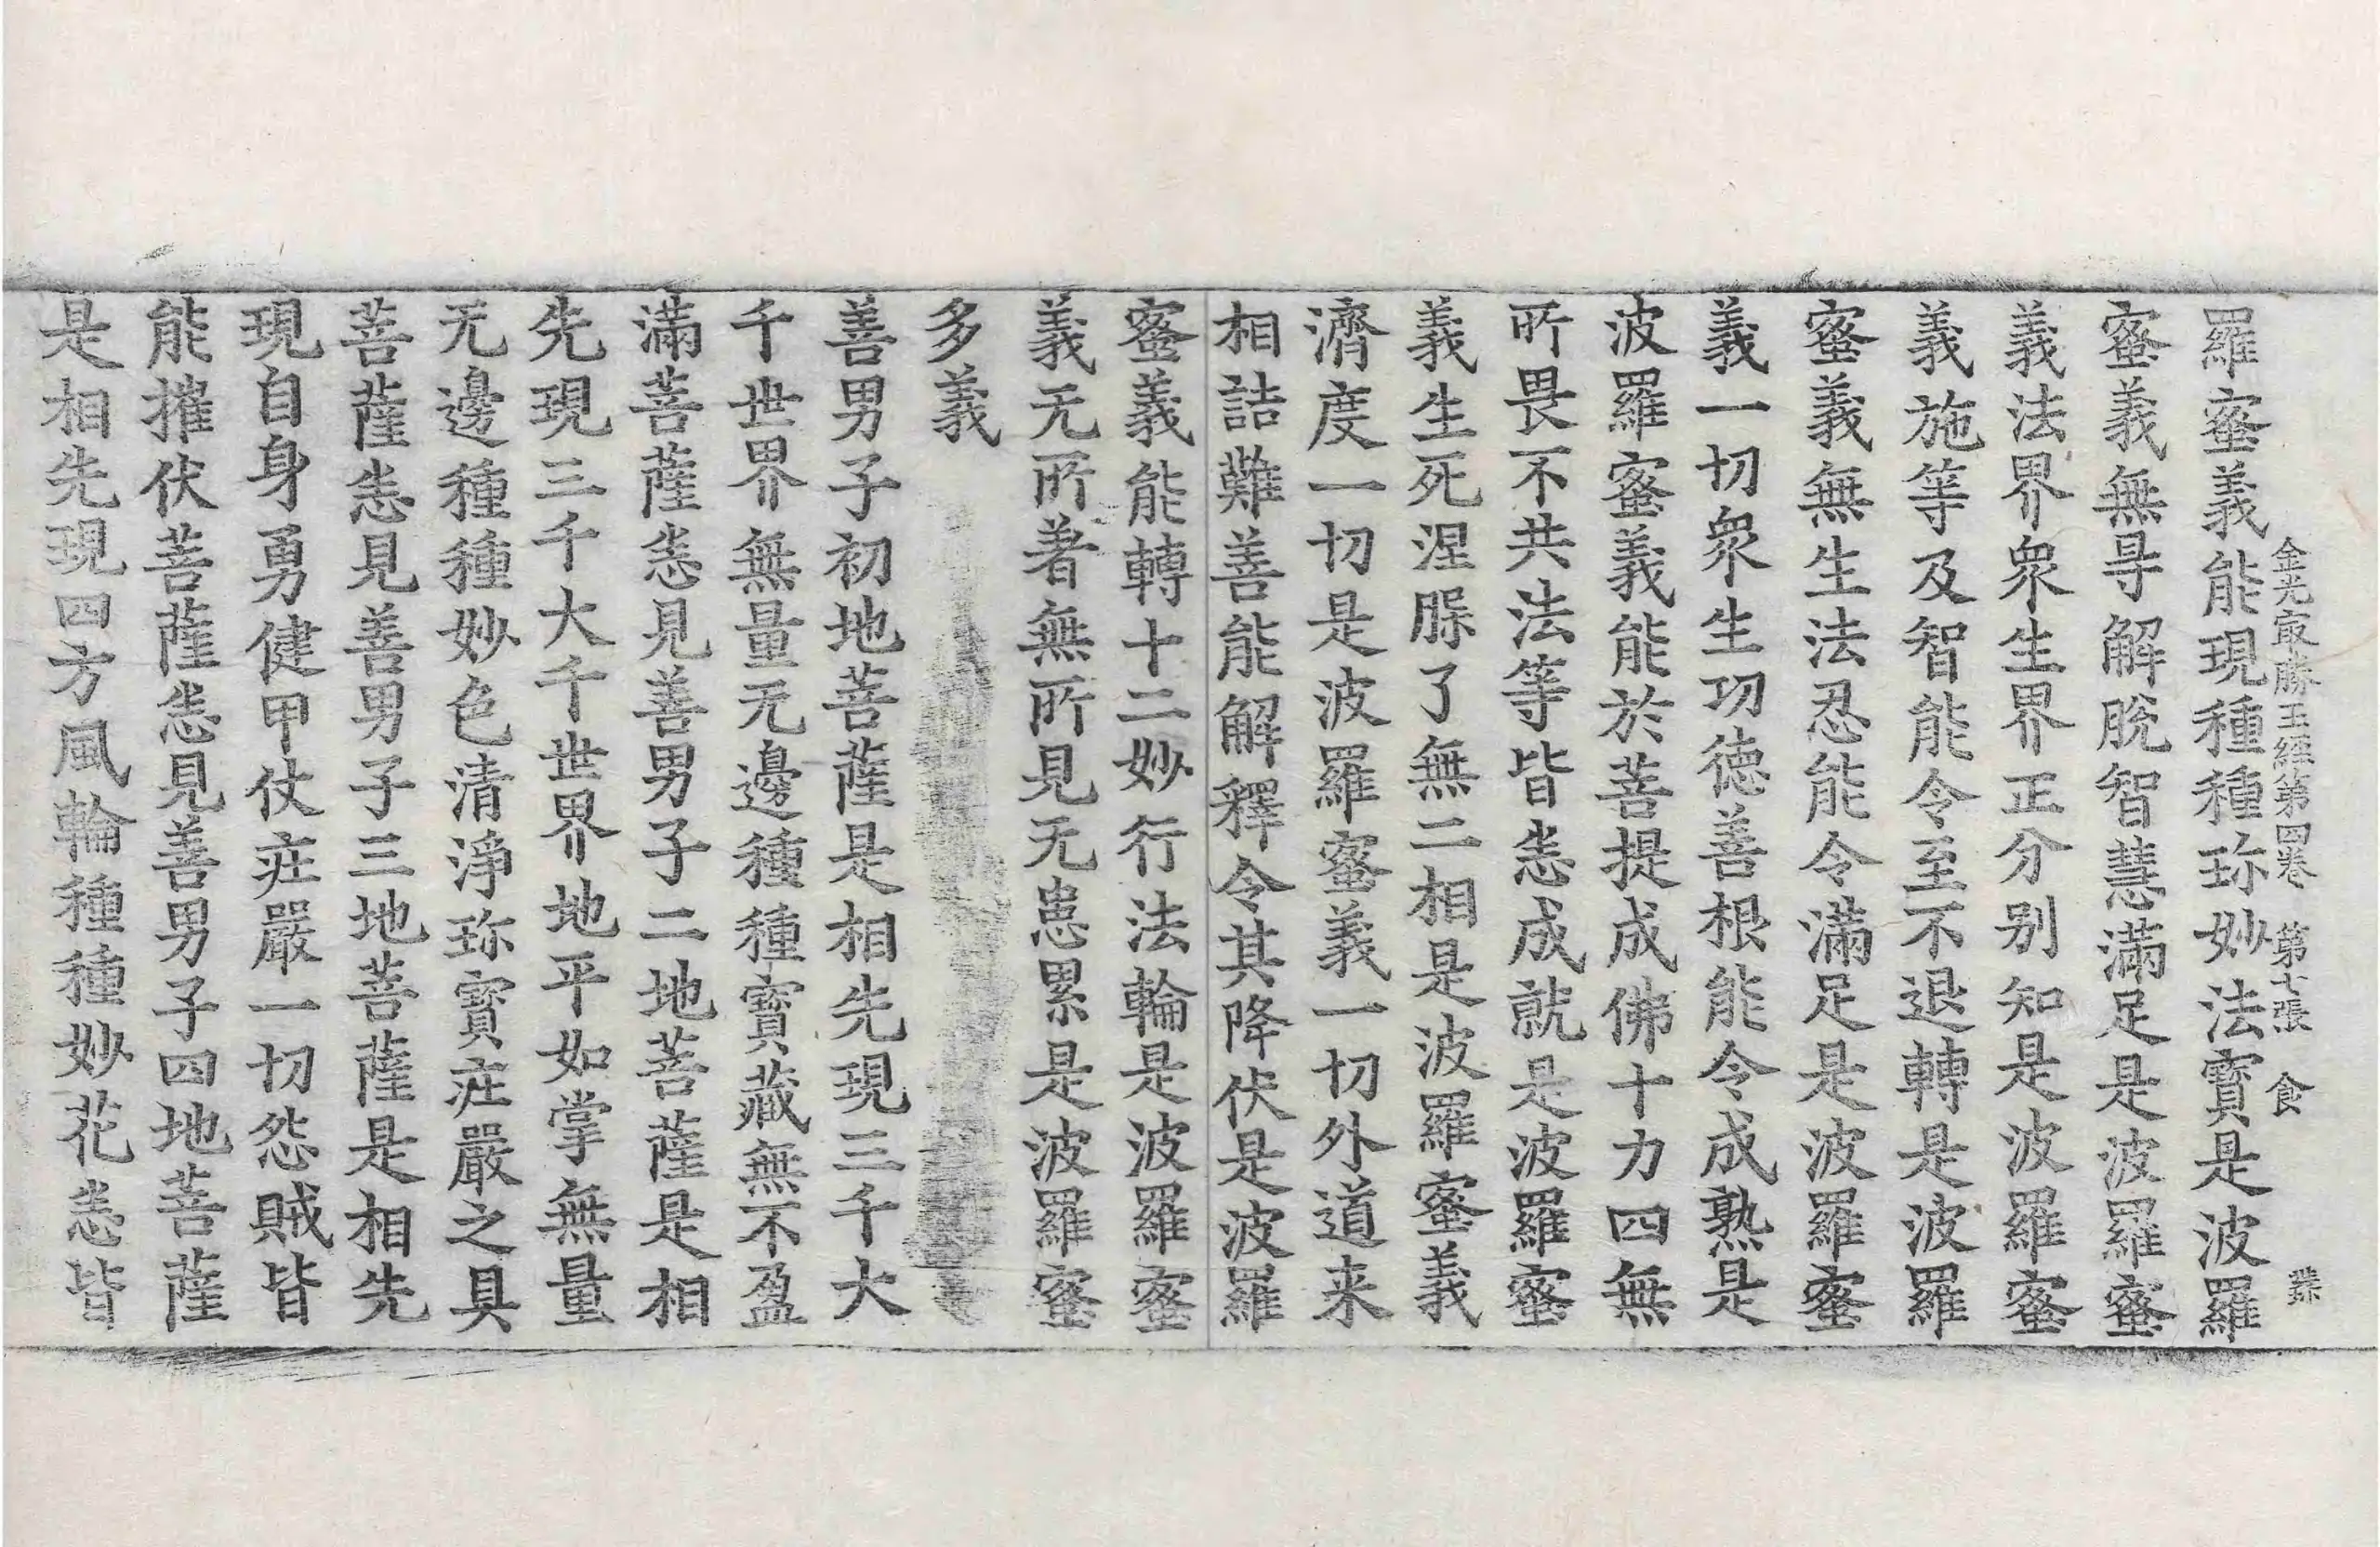 金光㝡勝王經第四卷　第七張　食
羅蜜義能現種種珎妙法寳是波羅
蜜義無㝵解脫智慧滿足是波羅蜜
義法界衆生界正分別知是波羅蜜
義施等及智能令至不退轉是波羅
蜜義無生法忍能令滿足是波羅蜜
義一切衆生功德善根能令成熟是
波羅蜜義能於菩提成佛十力四無
所畏不共法等皆悉成就是波羅蜜
義生死涅槃了無二相是波羅蜜義
濟度一切是波羅蜜義一切外道来
相詰難善能解釋令其降伏是波羅
蜜義能轉十二妙行法輪是波羅蜜
義无所著無所見无患累是波羅蜜
多義
善男子初地菩薩是相先現三千大
千世界無量无邊種種寳藏無不盈
滿菩薩悉見善男子二地菩薩是相
先現三千大千世界地平如掌無量
无邊種種妙色清淨珎寳莊嚴之具
菩薩悉見善男子三地菩薩是相先
現自身勇健甲仗莊嚴一切怨賊皆
能摧伏菩薩悉見善男子四地菩薩
是相先現四方風輪種種妙花悉皆